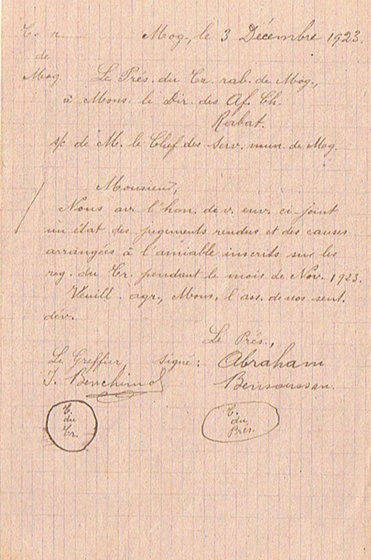 T. r. Mog., le 3 Décembre 1923.
de
Mog Le Prés. du Tr. rab. de Mog.,
à Mons. le Dir. des Af. Ch.
Rabat.
s/c de M. le Chef des Serv. mun. de Mog.
Monsieur,
Nous av. l'hon. de v. env. ci-joint
un état des jugements rendus et des causes
arrangées à l'amiable inscrits sur les
reg. du Tr. pendant le mois de Nov. 1923.
Veuill. agr., Mons., l'ass. de nos sent.
dév.
Le Prés.,
Le Greffier Signé: Abraham
J. Benchimol Bensoussan.
T. du Tr.
T. du Prés.